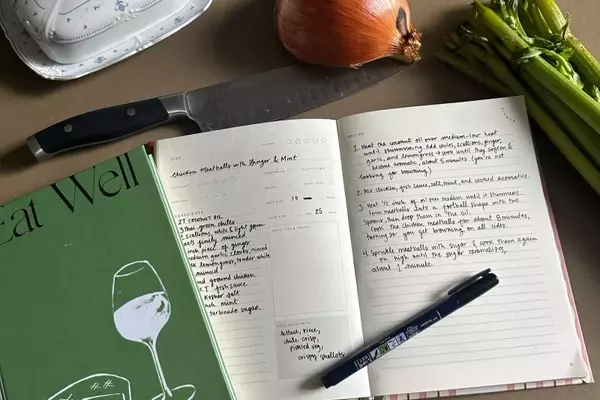 Eat Well
Chicken Meatballs with Ginger & Mint
15
25
INGREDIENTS
2T coconut oil
Thai green chiles
2 scallions, white & light green
parts finely minced
inch piece of ginger
medium garlic cloves, minced
lemongrass, tender white
minced
ground chicken
T fish sauce
Kosher salt
mint
turbinado sugar
lettuce, rice,
chile crisp,
pickled veg,
crispy shallots
RECIPE
1. Heat the coconut oil over medium-low heat
until shimmering. Add chiles, scallions, ginger,
garlic, and lemongrass & cook until they soften &
become aromatic, about 5 minutes (you're not
looking for browning).
2. Mix chicken, fish sauce, salt, mint, and cooked aromatics.
3. Heat ½ inch of oil over medium until it shimmers.
Form meatballs into a football shape with two
spoons, then drop them in the oil.
Cook the chicken meatballs for about 8 minutes,
turning so you get browning on all sides.
4. Sprinkle meatballs with sugar & cook them again
on high until the sugar caramelizes,
about 1 minute.